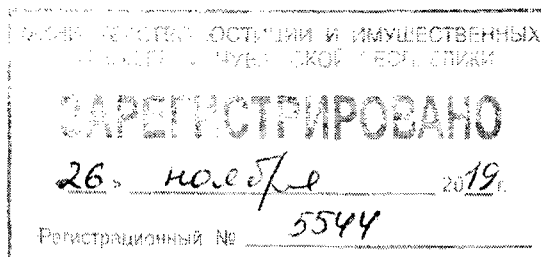 ЮСТИЦИИ И ИМУЩЕСТВЕННЫХ
ЧУВАШСКОЙ РЕСПУБЛИКИ
ЗАРЕГИСТРИРОВАНО
26 » ноября 2019 г.
Регистрационный № 5544